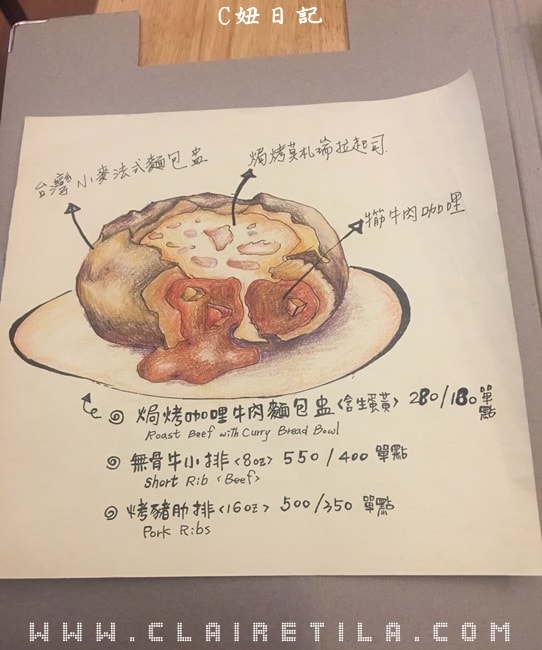 C妞日記
焗烤莫札瑞拉起司
台灣小麥法式麵包盅
牛肉咖哩
焗烤咖哩牛肉麵包盅<含生蛋黃> 280/180單點
Roast Beef with Curry Bread Bowl
無骨牛小排<8oz> 550/400 單點
Short Rib <Beef>
烤豬肋排<16oz> 500/350 單點
Pork Ribs
WWW.CLAIRETILA.COM